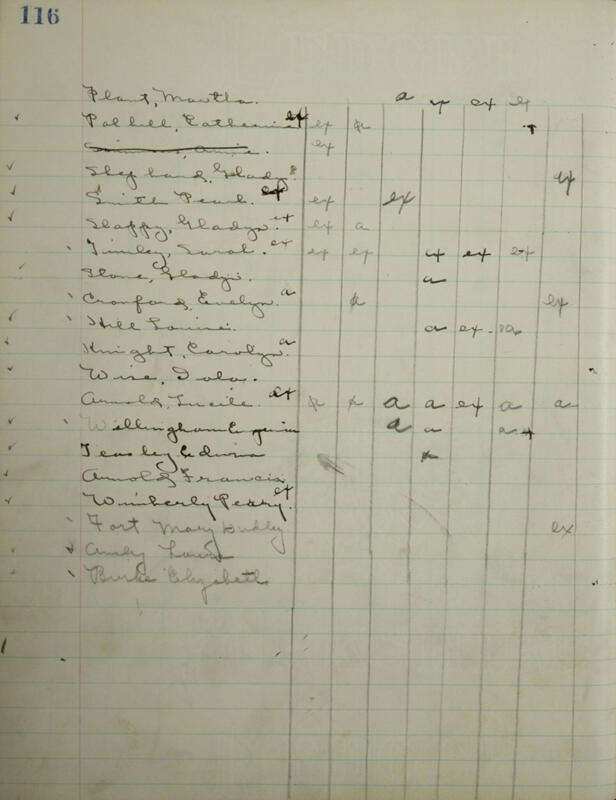 116
Plant, Martha. a ex ex
Polhill, Catherine ex ex a
ex
Shepband, Gladys ex
Smith Pearl. ex ex ex
Slappy, Gladys. ex ex a
Tinsley, Sarah. ex ex ex x ex ex
Stone, Gladys. a
Cranford, Evelyn. a ex
Hill Louise. a ex
Knight, Carolyn. a
Wise, Iola.
Arnold, Lucile. ex a a ex a a
Willingham Eugenia a a a
Teasley Edwina x
Arnold, Francis
Wimberly Peary. ex
Fort Mary Dudley ex
Louise
Burke Elizabeth